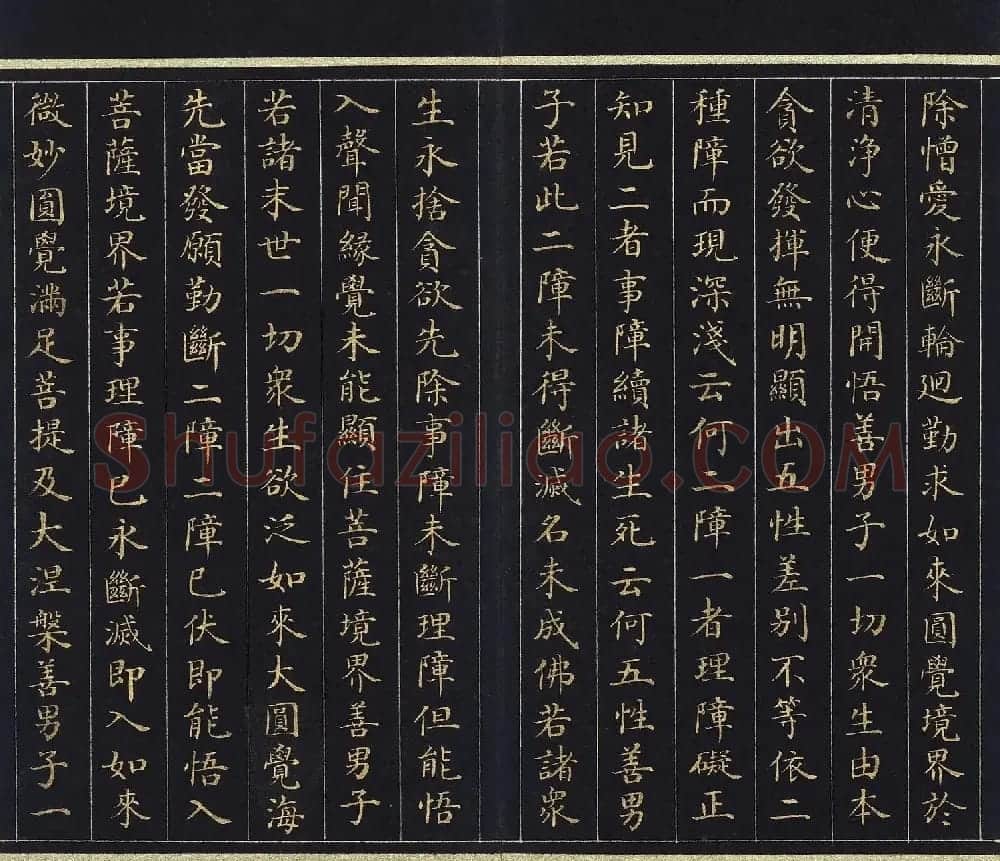 除憎愛永斷輪迴勤求如來圓覺境界於
清淨心便得開悟善男子一切眾生由本
貪欲發揮無明顯出五性差別不等依二
種障而現深淺云何二障一者理障礙正
知見二者事障續諸生死云何五性善男
子若此二障未得斷滅名未成佛若諸眾
生永捨貪欲先除事障未斷理障但能悟
入聲聞緣覺未能顯住菩薩境界善男子
若諸末世一切眾生欲泛如來大圓覺海
先當發願勤斷二障二障已伏即能悟入
菩薩境界若事理障已永斷滅即入如來
微妙圓覺滿足菩提及大涅槃善男子一
Shufaziliao.COM